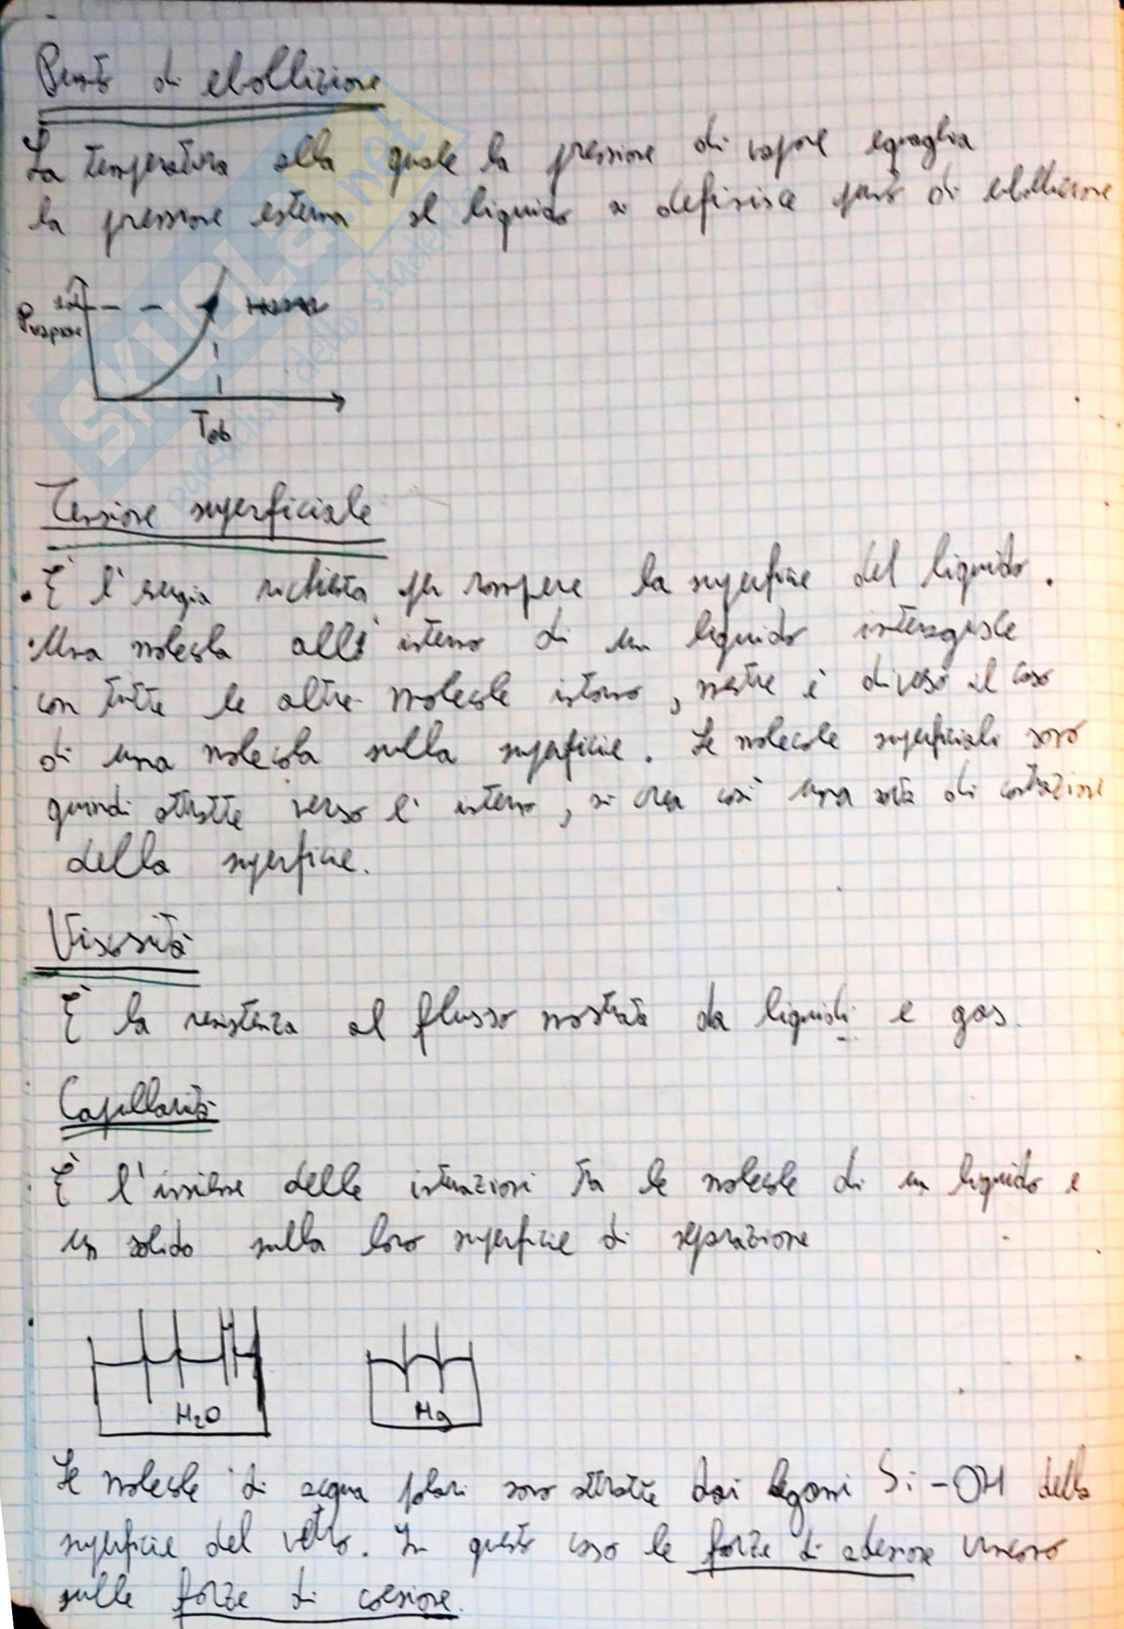 Punto di ebollizione
La temperatura alla quale la pressione di vapore eguaglia
la pressione esterna al liquido si definisce punto di ebollizione
1 atm
Pvapore
Teb
Tensione superficiale
• È l'energia richiesta per rompere la superficie del liquido.
• Una molecola all'interno di un liquido interagisce
con tutte le altre molecole intorno, mentre è diverso il caso
di una molecola sulla superficie. Le molecole superficiali sono
quindi attratte verso l'interno, si crea così una sorta di contrazione
della superficie.
Viscosità
È la resistenza al flusso mostrata da liquidi e gas.
Capillarità
È l'insieme delle interazioni tra le molecole di un liquido e
un solido sulla loro superficie di separazione
H₂O Hg
Le molecole di acqua polari sono attratte dai legami Si-OH della
superficie del vetro. In questo caso le forze di adesione vincono
sulle forze di coesione.
SKUOLA.net